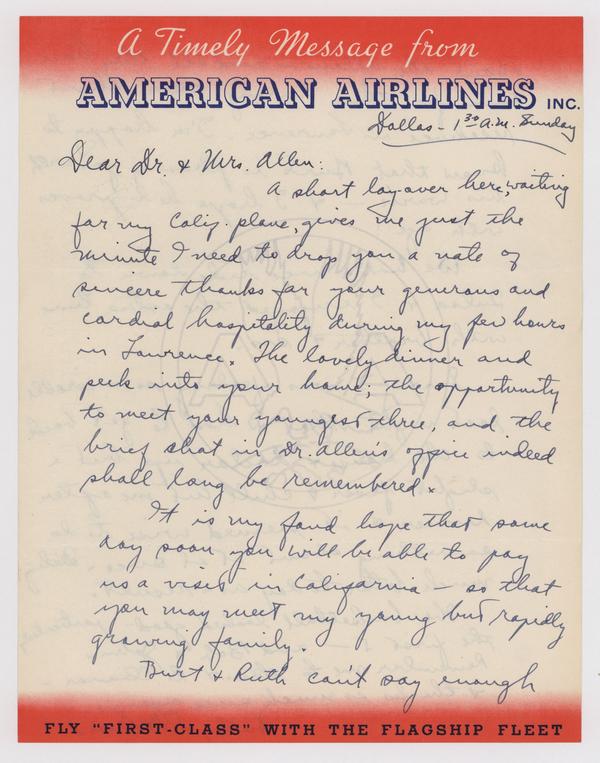 A Timely Message from
AMERICAN AIRLINES INC.
Dallas - 1 30 A.M. Sunday
Dear Dr. & Mrs. Allen:
A short lay-over here, waiting
for my Calif. plane, gives me just the
minute I need to drop you a note of
sincere thanks for your generous and
cordial hospitality during my few hours
in Lawrence. The lovely dinner and
peek into your home; the opportunity
to meet your youngest three, and the
brief chat in Dr. Allen's office indeed
shall long be remembered.
It is my fond hope that some
day soon you will be able to pay
us a visit in California - so that
you may meet my young but rapidly
growing family.
Burt & Ruth can't say enough
FLY "FIRST-CLASS" WITH THE FLAGSHIP FLEET